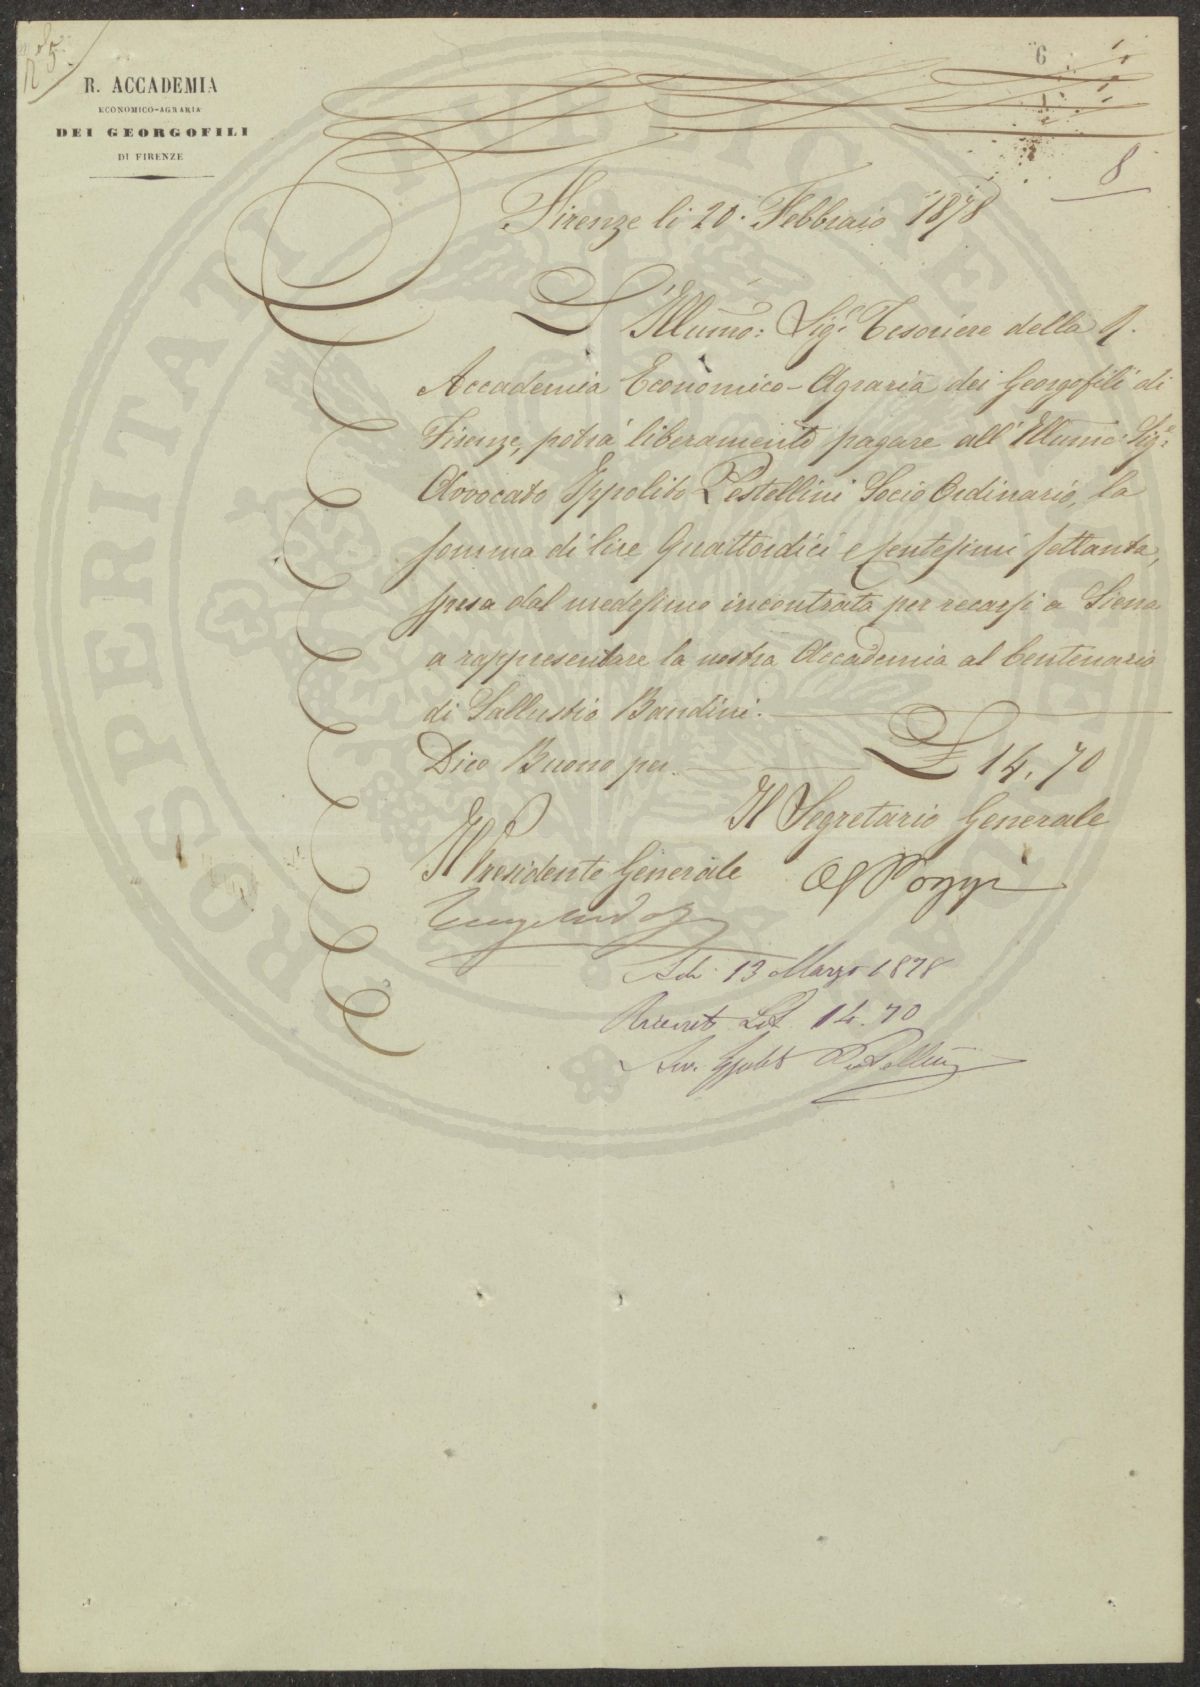 N.º 5.
6
R. ACCADEMIA
ECONOMICO-AGRARIA
DEI GEORGOFILI
DI FIRENZE
8
Firenze li 20. Febbraio 1878
L'Illumo: Sigre Tesoriere della R.
Accademia Economico-Agraria dei Georgofili di
Firenze, potrà liberamente pagare all'Illumo: Sigre
Avvocato Ippolito Pestellini Socio Ordinario, la
somma di lire Quattordici e Centesimi settanta,
spesa dal medesimo incontrata per recarsi a Siena
a rappresentare la nostra Accademia al Centenario
di Sallustio Bandini.
Dico Buono per £ 14,70
Il Segretario Generale
Il Presidente Generale
A. Pozzi
Adì 13 Marzo 1878
Ricevuto Lit 14.70
Avv. Ippolito Pestellini
PROSPERITATI PUBLICAE AUGENDAE